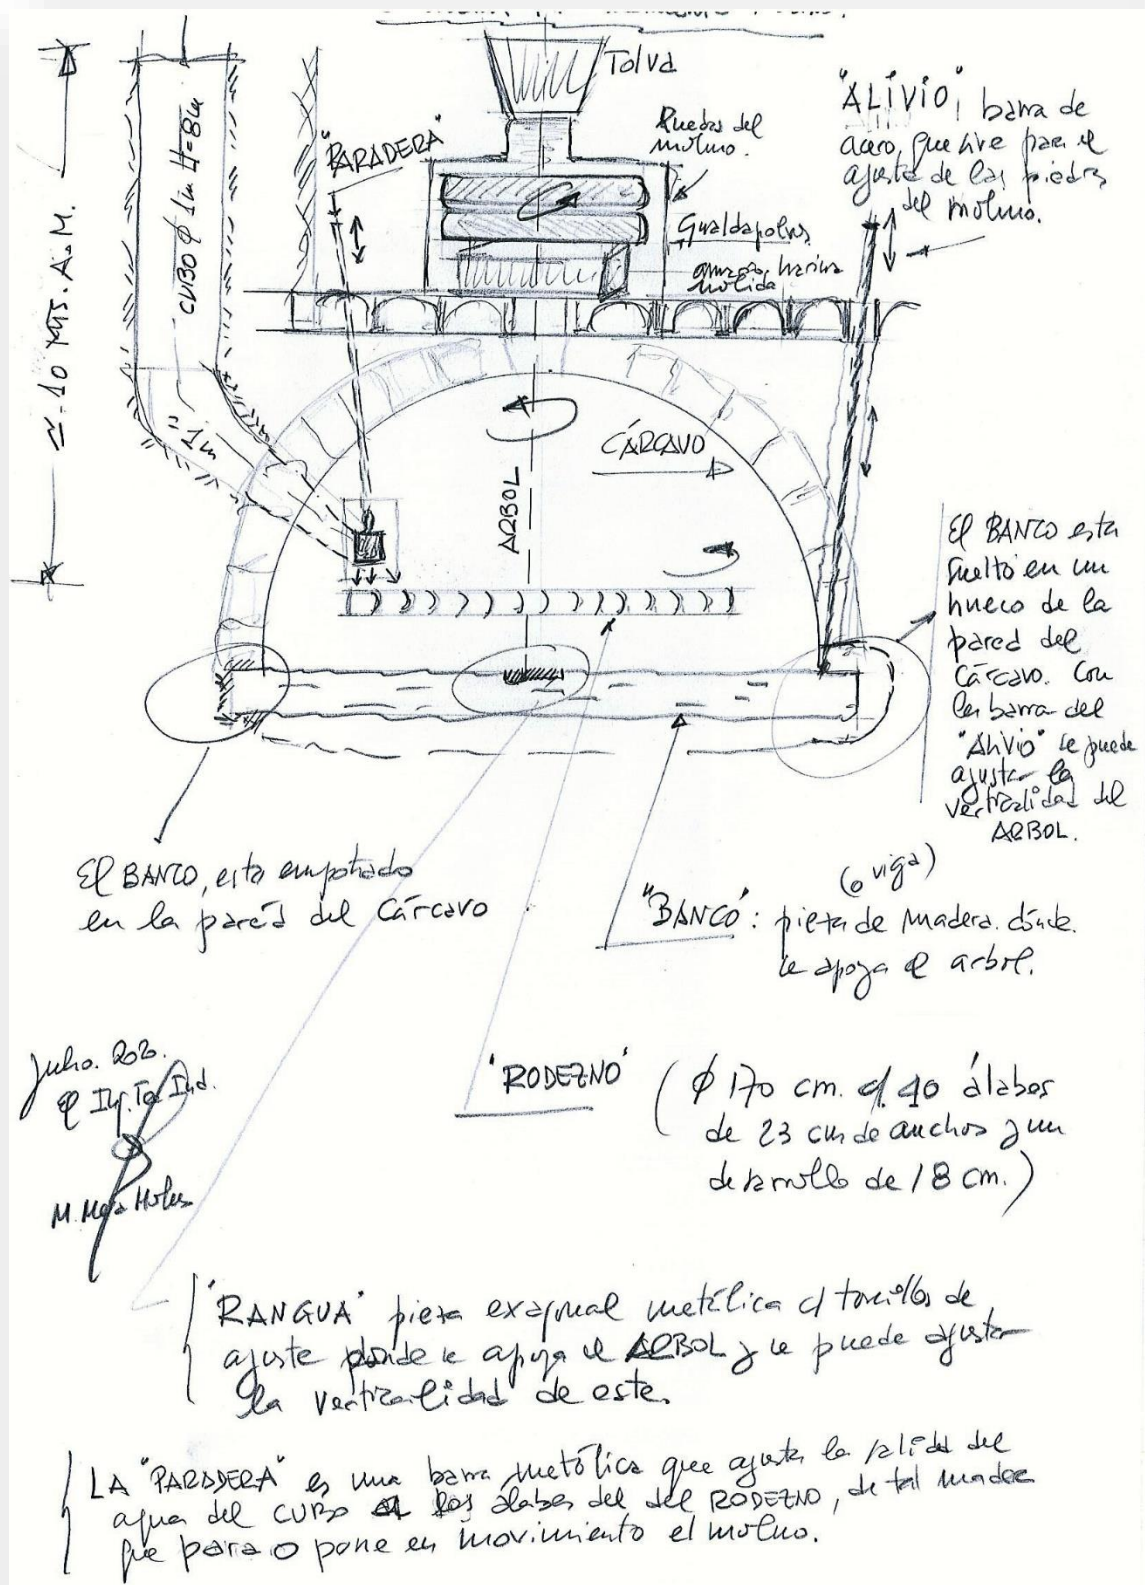 Tolva
"PARADERA"
Ruedas del
molino.
Gualdapolvos
harina
molida
"ALIVIO", barra de
acero, que sirve para el
ajuste de las piedras
del molino.
≃ 10 MTS. A.M.
CUBO ϕ 1m H=8m
1m
ARBOL
CÁRCAVO
El BANCO esta
suelto en un
hueco de la
pared del
Cárcavo. Con
la barra del
"Alivio" se puede
ajustar la
verticalidad del
ARBOL.
El BANCO, esta empotrado
en la pared del Cárcavo
(o viga)
"BANCO": pieza de madera. dónde
se apoya el arbol.
Julio.
Ing. Tec. Ind.
M.
"RODEZNO" (ϕ 170 cm. c/ 40 álabes
de 23 cms de anchos y un
desarrollo de 18 cm.)
"RANGUA" pieza exagonal metálica c/ tornillos de
ajuste donde se apoya el ARBOL y se puede ajustar
la verticalidad de este.
LA "PARADERA" es una barra metálica que ajusta la salida del
agua del CUBO a los álabes del del RODEZNO, de tal manera
que para o pone en movimiento el molino.